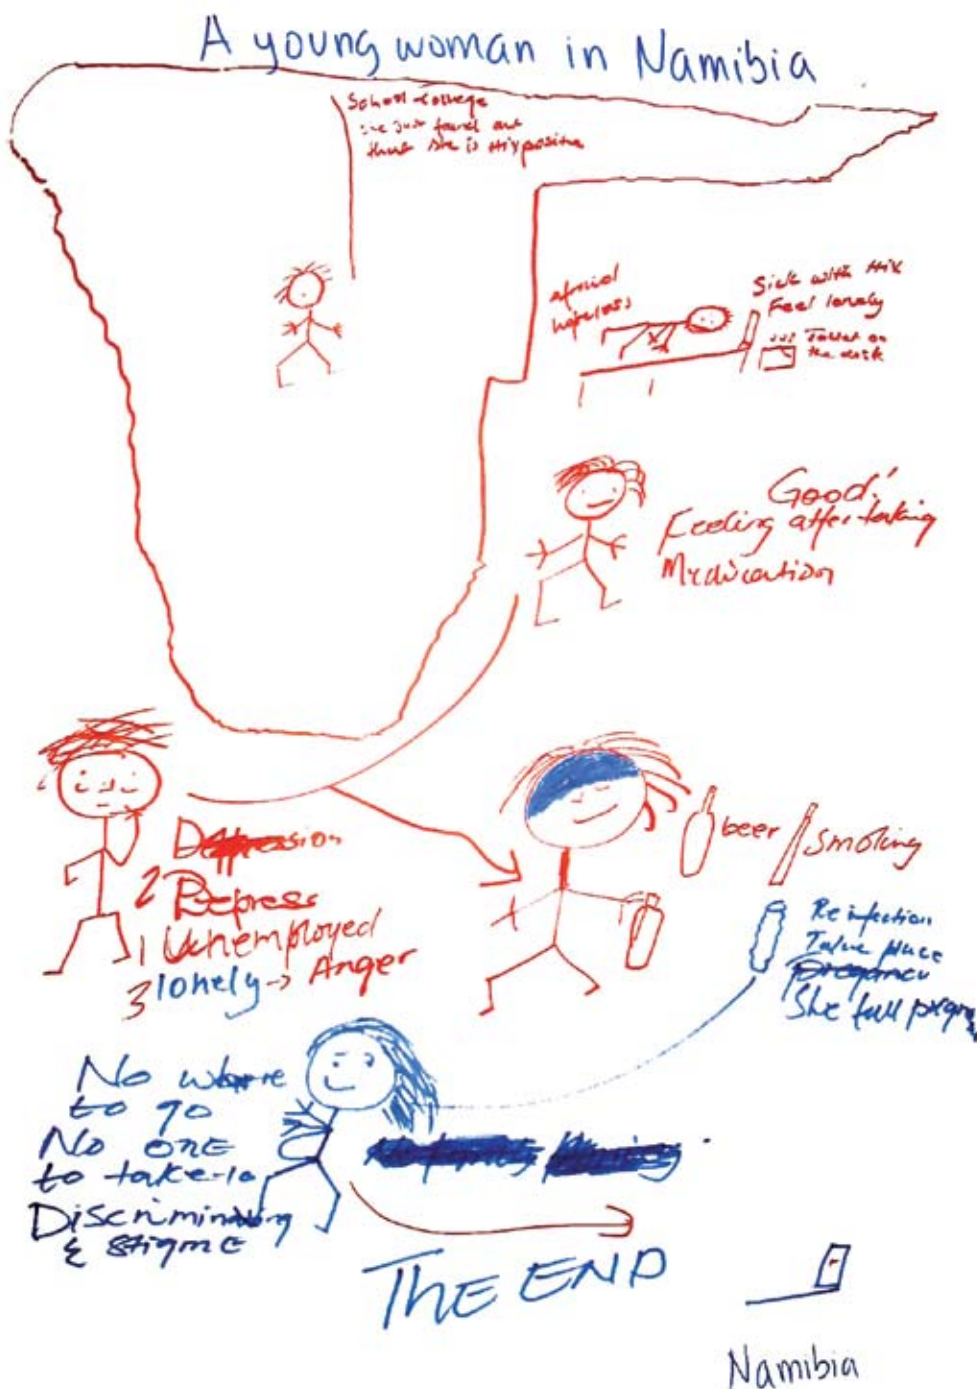 A young woman in Namibia
School-college
she just found out
that she is HIV positive
afraid
hopeless
Sick with HIV
Feel lonely
Tablet on
the desk
Good!
Feeling after taking
Medication
beer
smoking
2 Depress
1 Unemployed
3 lonely → Anger
Reinfection
Take place
She fall
No where
to go
No one
to take-to
Discriminating
& stigme
THE END
Namibia